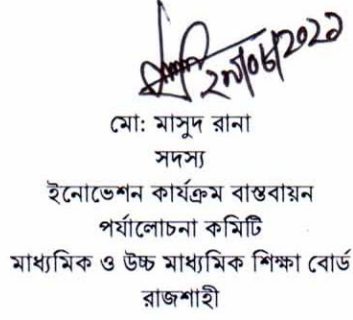 মো: মাসুদ রানা
সদস্য
ইনোভেশন কার্যক্রম বাস্তবায়ন
পর্যালোচনা কমিটি
মাধ্যমিক ও উচ্চ মাধ্যমিক শিক্ষা বোর্ড
রাজশাহী